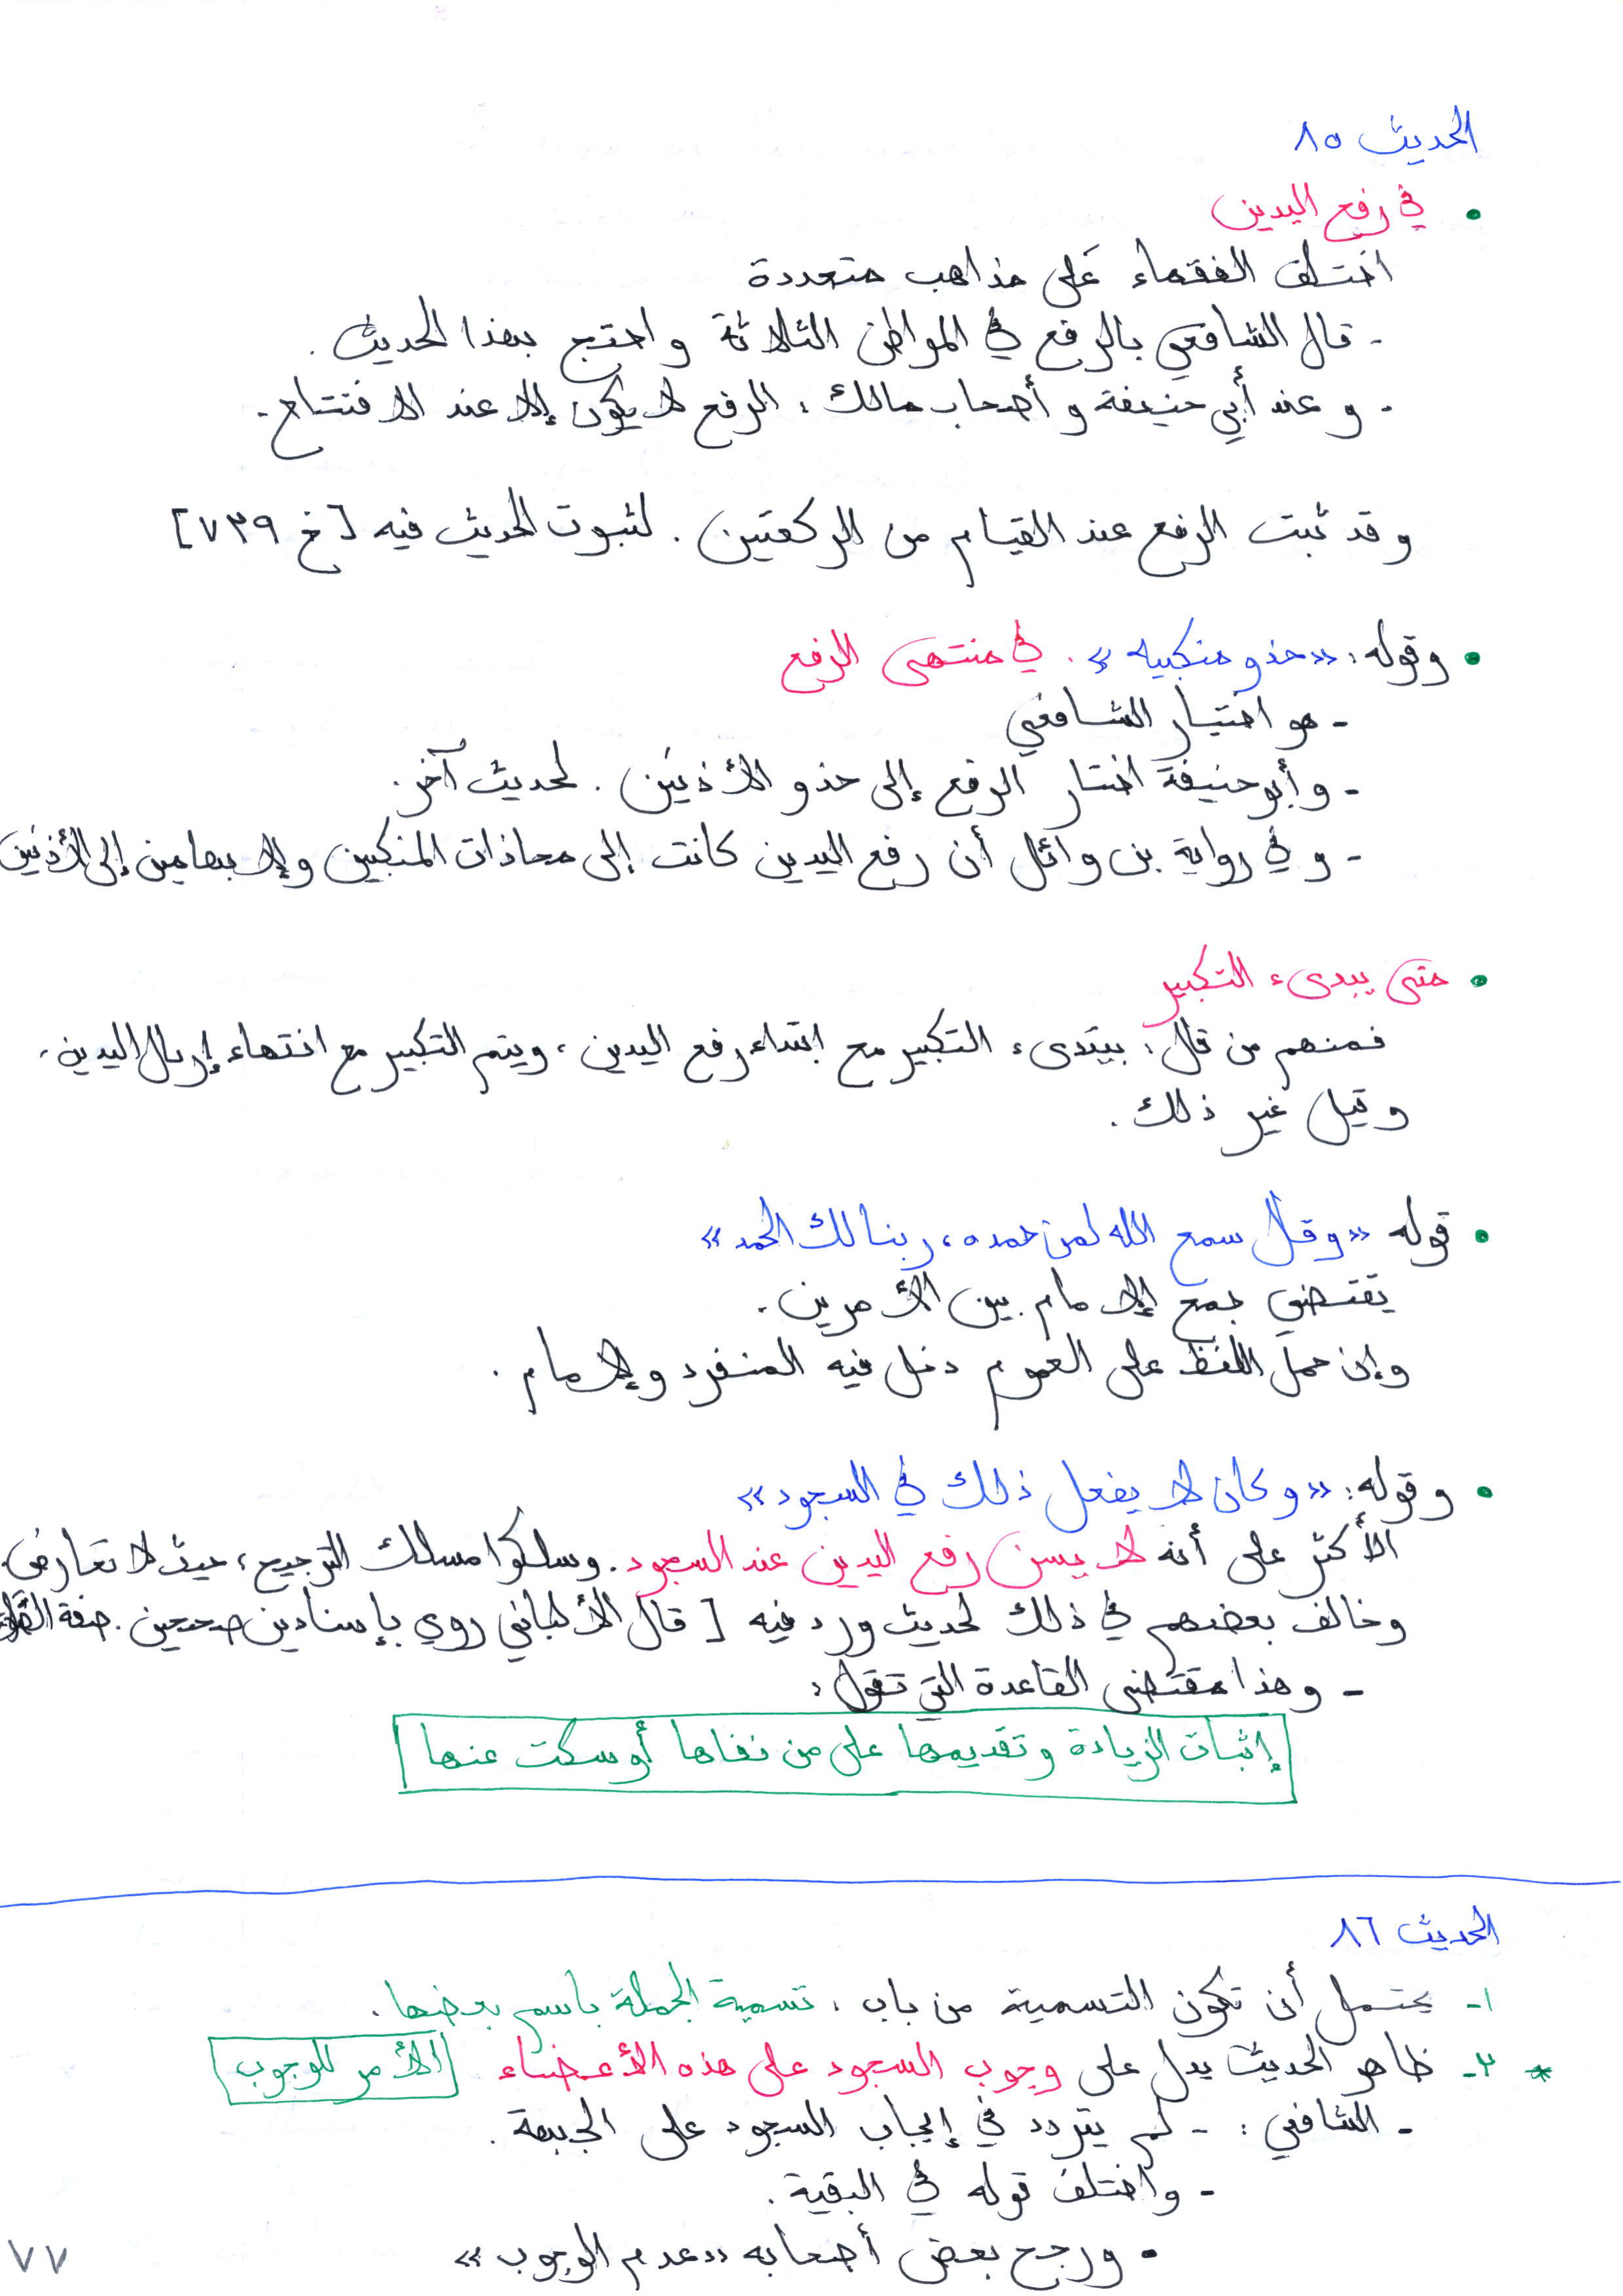 الحديث ٨٥
• في رفع اليدين
اختلف الفقهاء على مذاهب متعددة
- قال الشافعي بالرفع في المواطن الثلاثة واحتج بهذا الحديث.
- وعند أبي حنيفة وأصحاب مالك: الرفع لا يكون إلا عند الافتتاح.
وقد ثبت الرفع عند القيام من الركعتين. لثبوت الحديث فيه [خ ٧٣٩]
• وقوله: «حذو منكبيه». في منتهى الرفع
- هو اختيار الشافعي
- وأبو حنيفة اختار الرفع إلى حذو الأذنين. لحديث آخر.
- وفي رواية بن وائل أن رفع اليدين كانت إلى محاذات المنكبين والإبهامين إلى الأذنين
• متى يبدىء التكبير
فمنهم من قال: يبتدىء التكبير مع ابتداء رفع اليدين، ويتم التكبير مع انتهاء إرسال اليدين،
وقيل غير ذلك.
• قوله «وقال سمع الله لمن حمده، ربنا لك الحمد»
يقتضي جمع الإمام بين الأمرين.
وإن حمل اللفظ على العموم دخل فيه المنفرد والإمام.
• وقوله: «وكان لا يفعل ذلك في السجود»
الأكثر على أنه لا يسن رفع اليدين عند السجود. وسلكوا مسلك الترجيح، حيث لا تعارض.
وخالف بعضهم في ذلك لحديث ورد فيه [قال الألباني روي بإسنادين صحيحين. صفة الصلاة
- وهذا مقتضى القاعدة التي تقول:
إثبات الزيادة وتقديمها على من نفاها أو سكت عنها
الحديث ٨٦
١- يحتمل أن تكون التسمية من باب، تسمية الجملة باسم بعضها.
* ٢- ظاهر الحديث يدل على وجوب السجود على هذه الأعضاء [الأمر للوجوب]
- الشافعي: - لم يتردد في إيجاب السجود على الجبهة.
- واختلف قوله في البقية.
• ورجح بعض أصحابه «عدم الوجوب»
٧٧